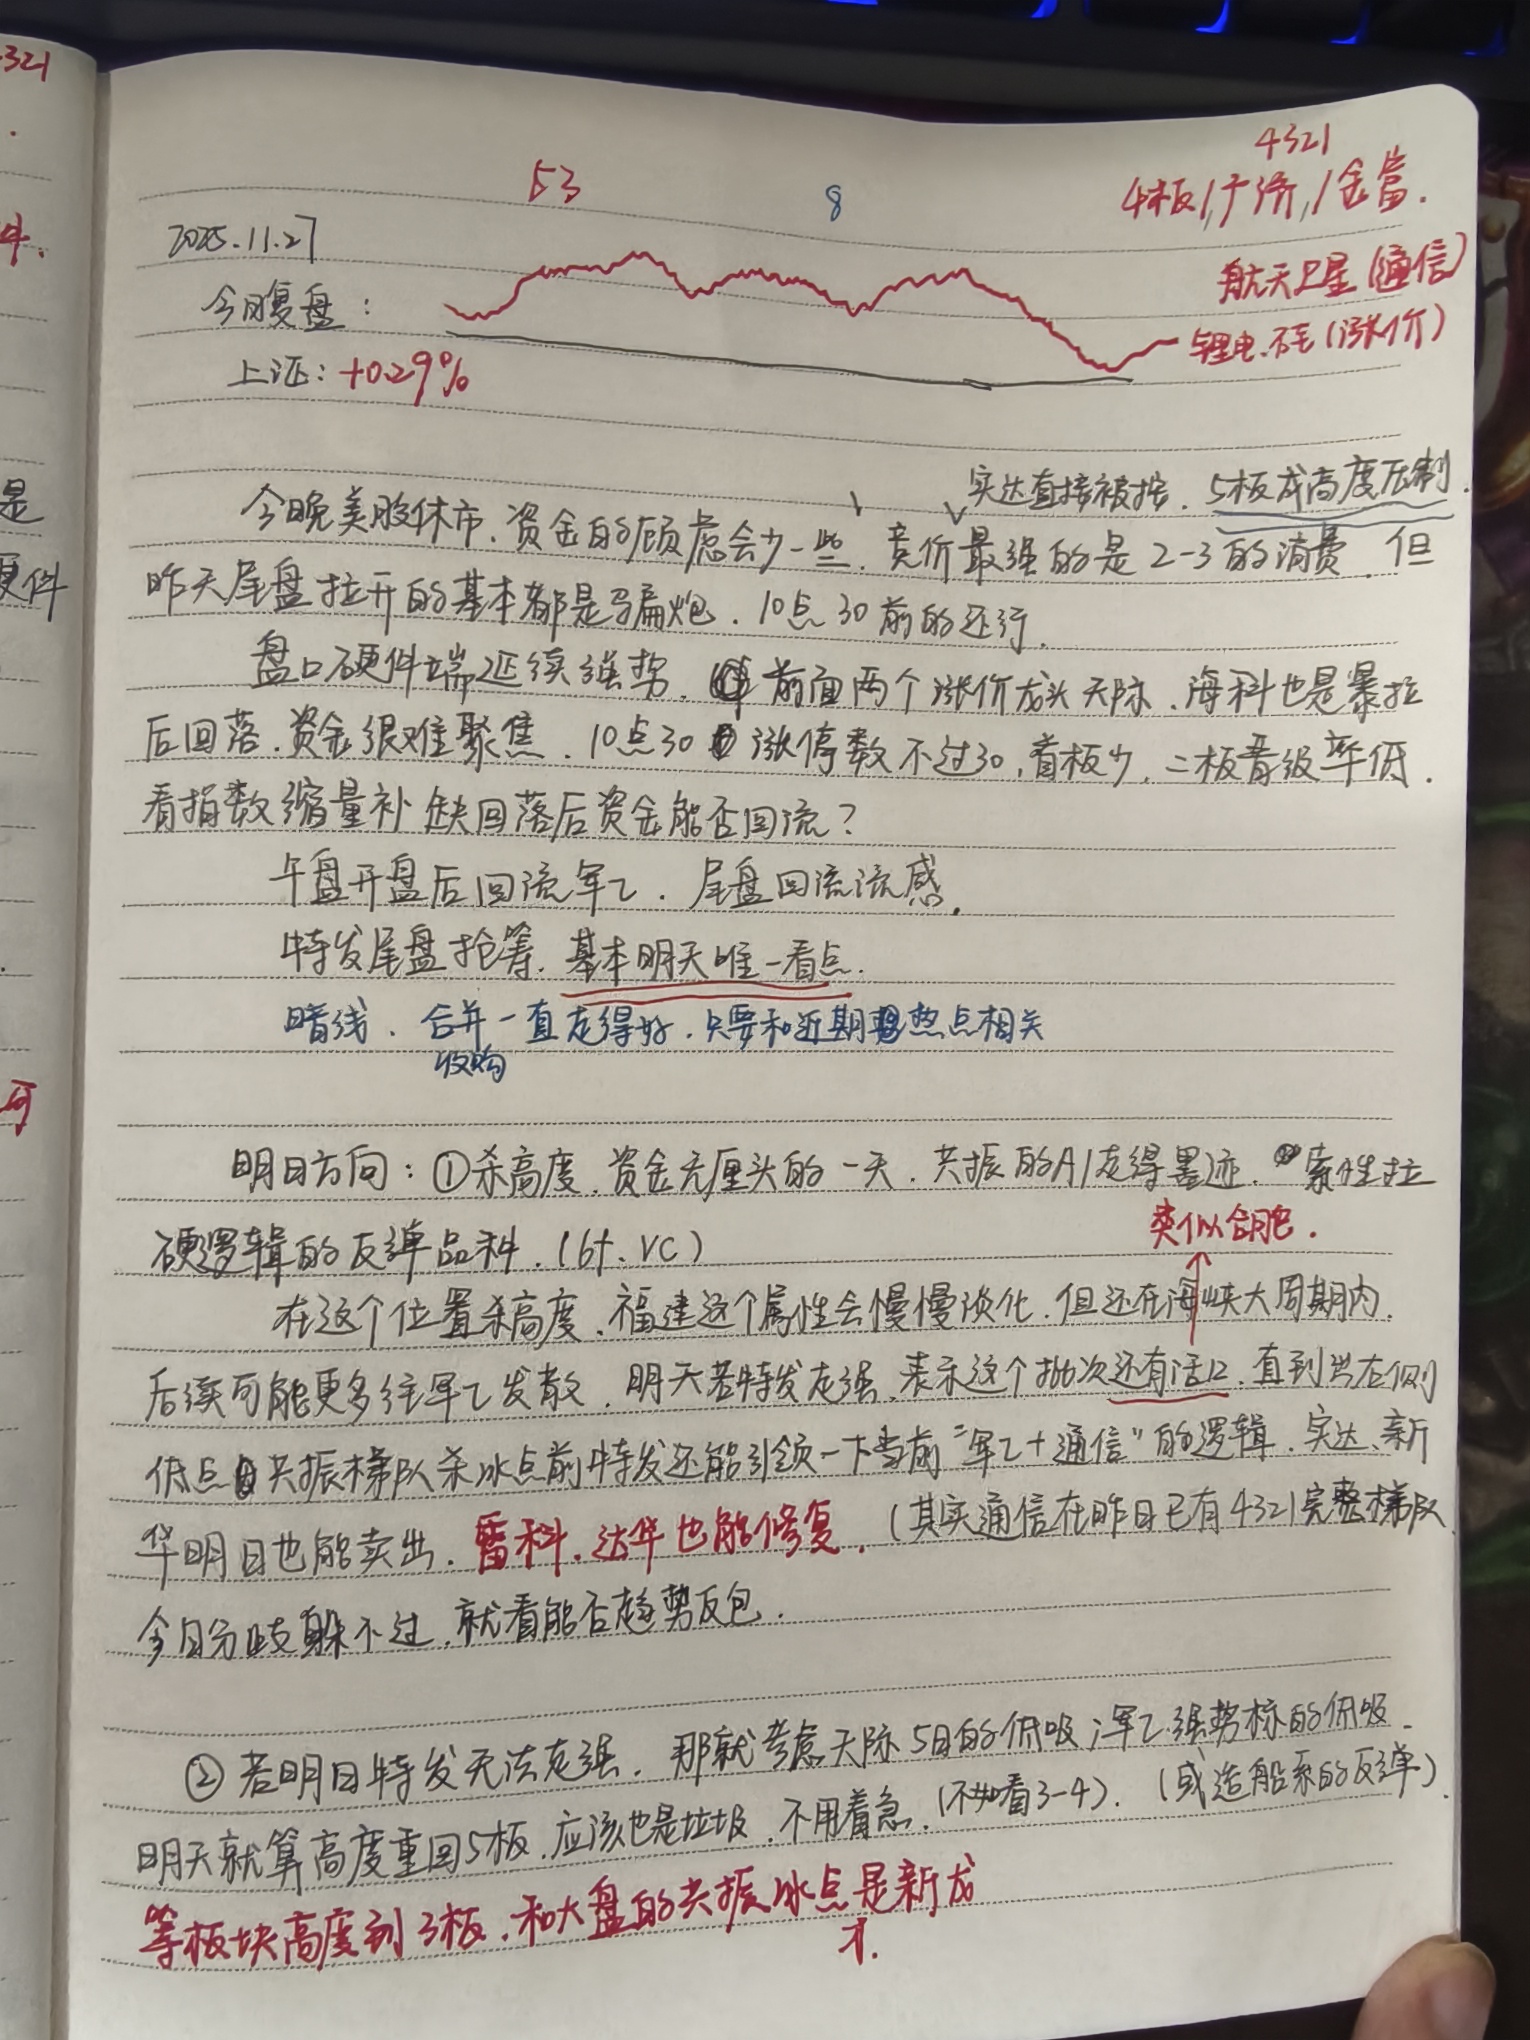 321
4321
53
8
4板1,于济,1金富.
2025.11.27
航天卫星(通信)
今日复盘:
锂电、石毛(涨价)
上证:+0.29%
实达直接被按、5板成高度压制.
今晚美股休市、资金的顾虑会少一些、竞价最强的是2-3的消费、但
昨天尾盘拉开的基本都是骗炮、10点30前的还行.
盘口硬件端延续强势、前面两个涨价龙头天际、海科也是暴拉
后回落、资金很难聚焦、10点30涨停数不过30,首板少、二板晋级率低.
看指数缩量补缺回落后资金能否回流?
午盘开盘后回流军工、尾盘回流流感.
特发尾盘抢筹、基本明天唯一看点.
暗线、合并一直走得好、只要和近期热点相关
收购
明日方向:①杀高度、资金无厘头的一天、共振的AI走得墨迹、索性拉
硬逻辑的反弹品种、(6f、VC)
类似合肥.
在这个位置杀高度、福建这个属性会慢慢淡化、但还在海峡大周期内.
后续可能更多往军工发散、明天若特发走强、表示这个批次还有活口、直到出右侧
低点共振梯队杀冰点前特发还能引领一下当前“军工+通信”的逻辑、实达、新
华明日也能卖出、雷科、达华也能修复、(其实通信在昨日已有4321完整梯队
今日分歧躲不过、就看能否趋势反包.
②若明日特发无法走强、那就考虑天际5日的低吸;军工强势标的低吸.
(或造船系的反弹)
明天就算高度重回5板、应该也是垃圾、不用着急、(不如看3-4).
等板块高度到3板、和大盘的共振冰点是新龙
才.